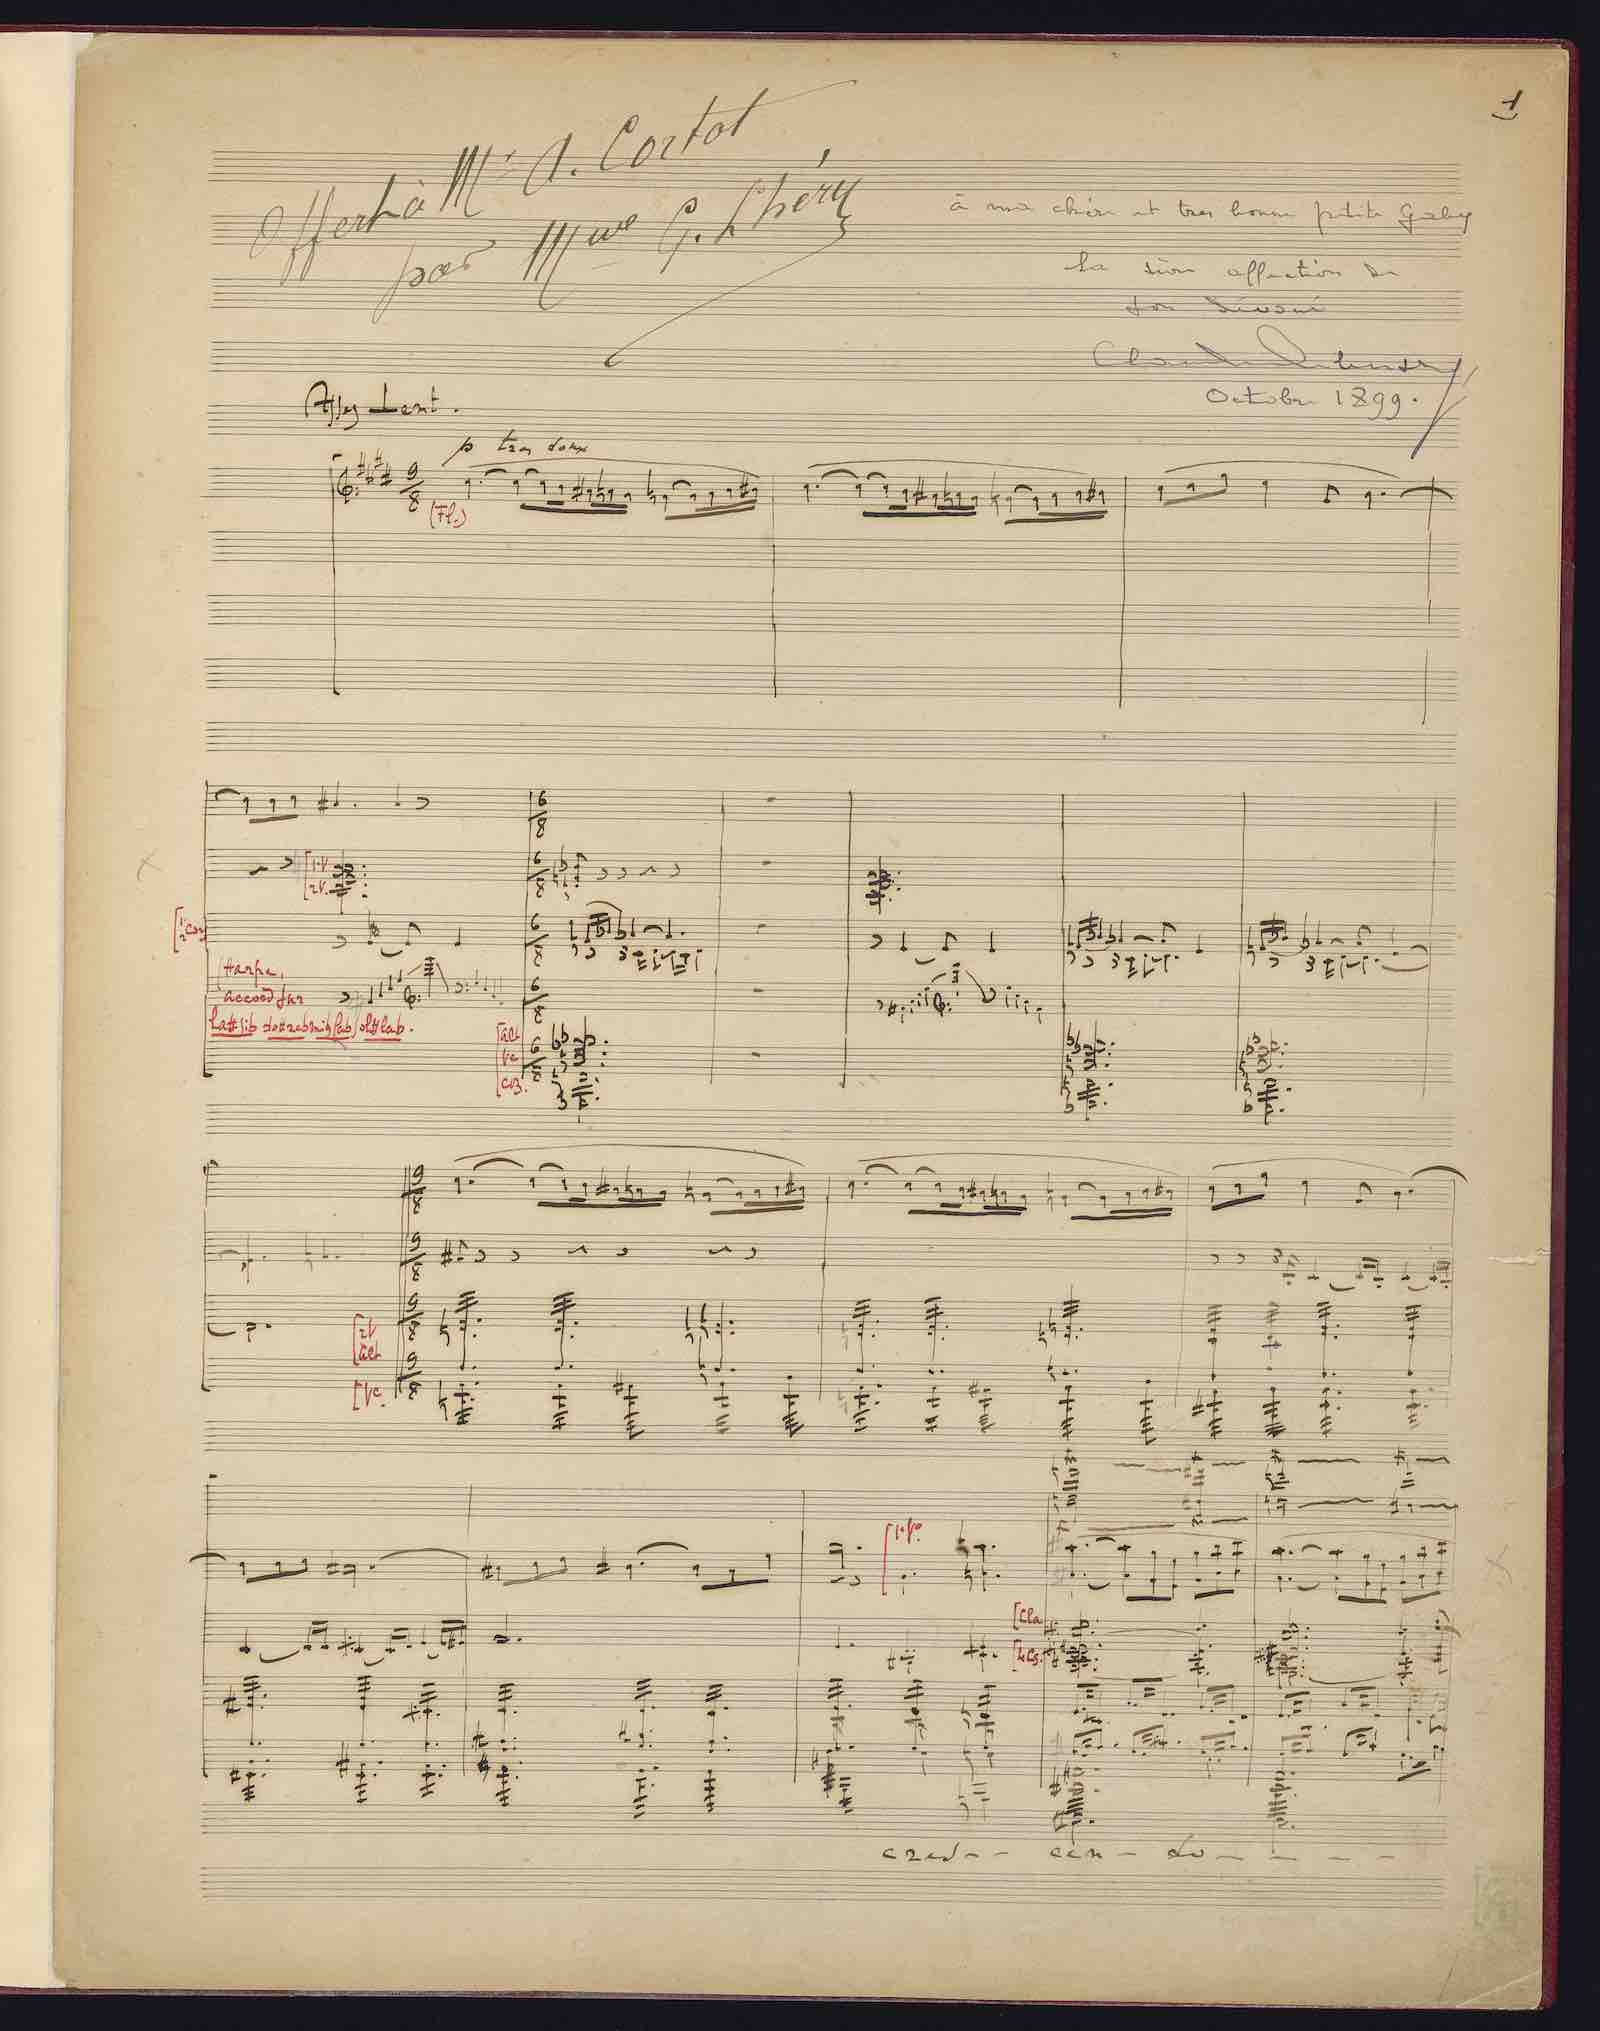 1
Offert à Mr A. Cortot
par Mme G. Lhéry
à ma chère et très bonne petite Gaby
la sûre affection de
son dévoué
Claude Debussy
Octobre 1899.
Assez Lent.
p très doux
9/8
(Fl.)
6/8
1.V.
2V.
6/8
1. Cor
2
6/8
Harpe,
accord sur
6/8
la# sib do# reb mi♮ fab sol# lab.
alt
vc
CB.
6/8
3
3
3
9/8
9/8
3
2V
alt
9/8
Vc.
9/8
1.Vo
Cla
cres - - cen - do - - - - -